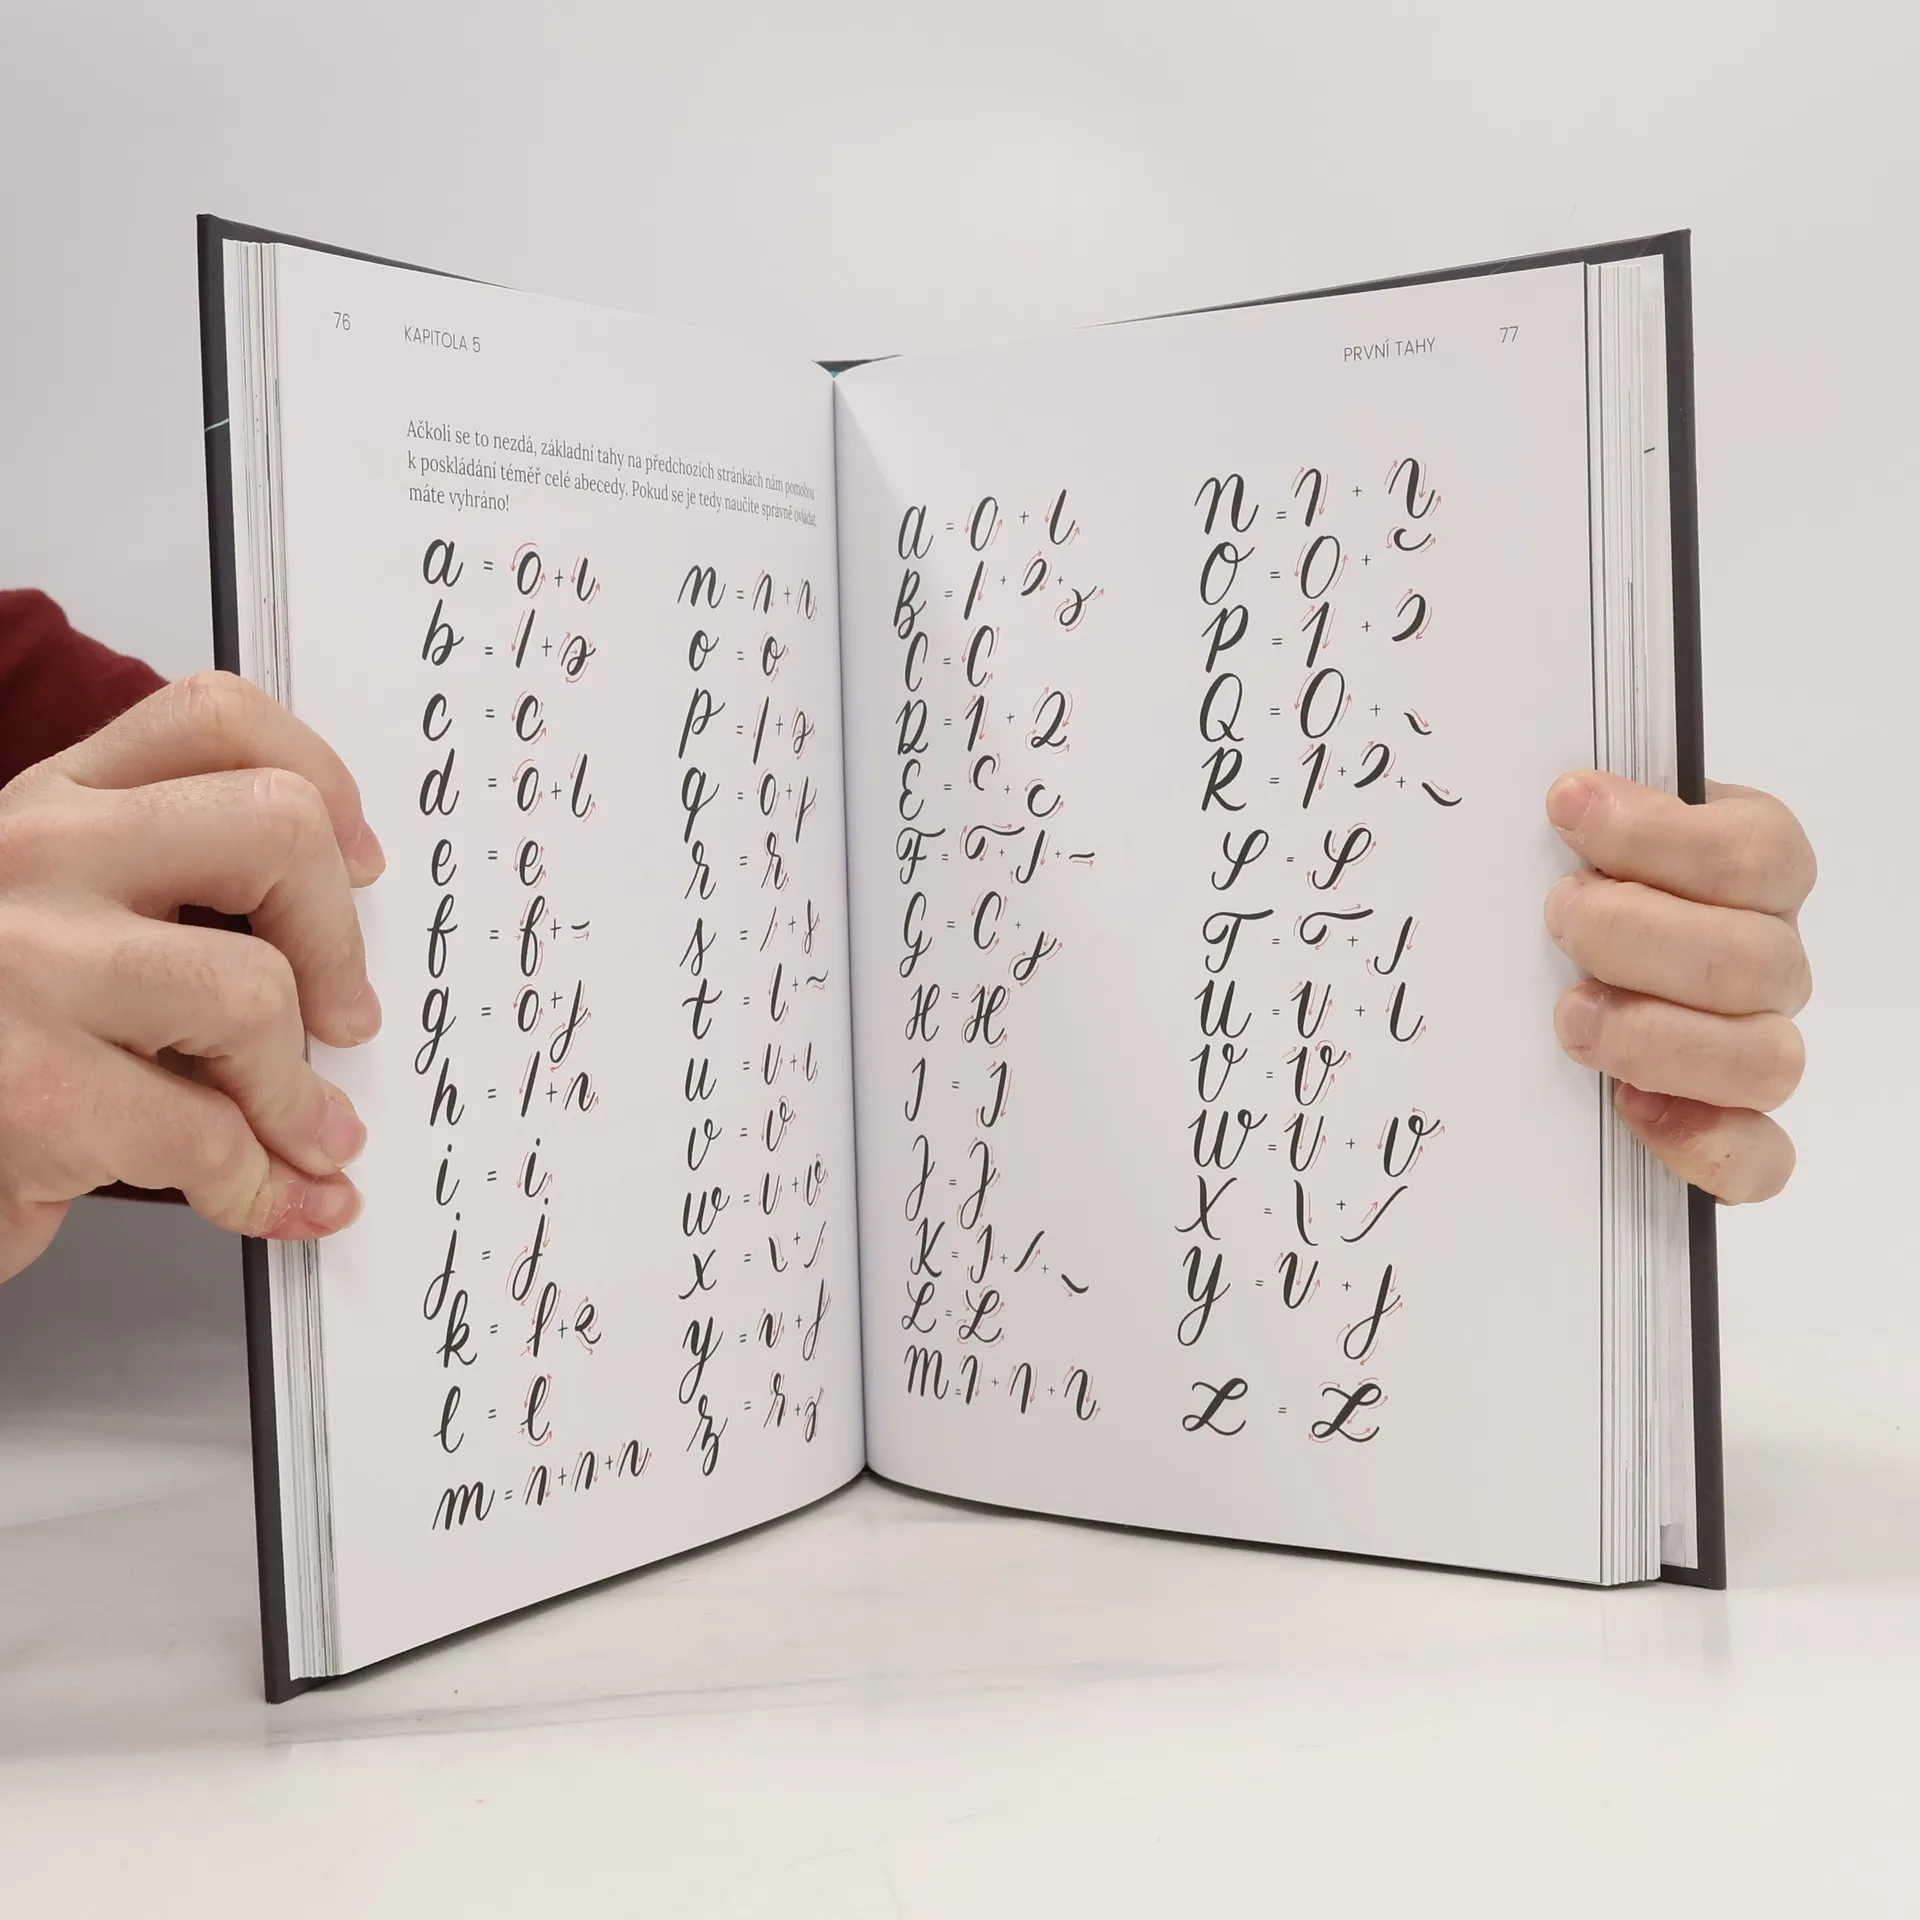 76 KAPITOLA 5
Ačkoli se to nezdá, základní tahy na předchozích stránkách nám pomohou
k poskládání téměř celé abecedy. Pokud se je tedy naučíte správně ovládat,
máte vyhráno!
a = o + ι
b = l +
c = c
d = o + l
e = e
f = f + ~
g = o + j
h = l + n
i = i
j = j
k = l +
l = l
m = n + n + n
n = n + n
o = o
p = l +
q = o +
r = r
s = / +
t = l + ~
u = υ + ι
v = v
w = υ + v
x = \ + /
y = υ + j
z = r +
PRVNÍ TAHY 77
A = O + ι
B = 1 + +
C = C
D = 1 + 2
E = C + C
F = + J + ~
G = C +
H = H
I = I
J = J
K = + / +
L = L
M = 1 + 1 +
N = 1 +
O = O +
P = 1 +
Q = O +
R = 1 + +
S = S
T = + J
U = U + ι
V = V
W = U + V
X = \ + /
Y = U + j
Z = Z